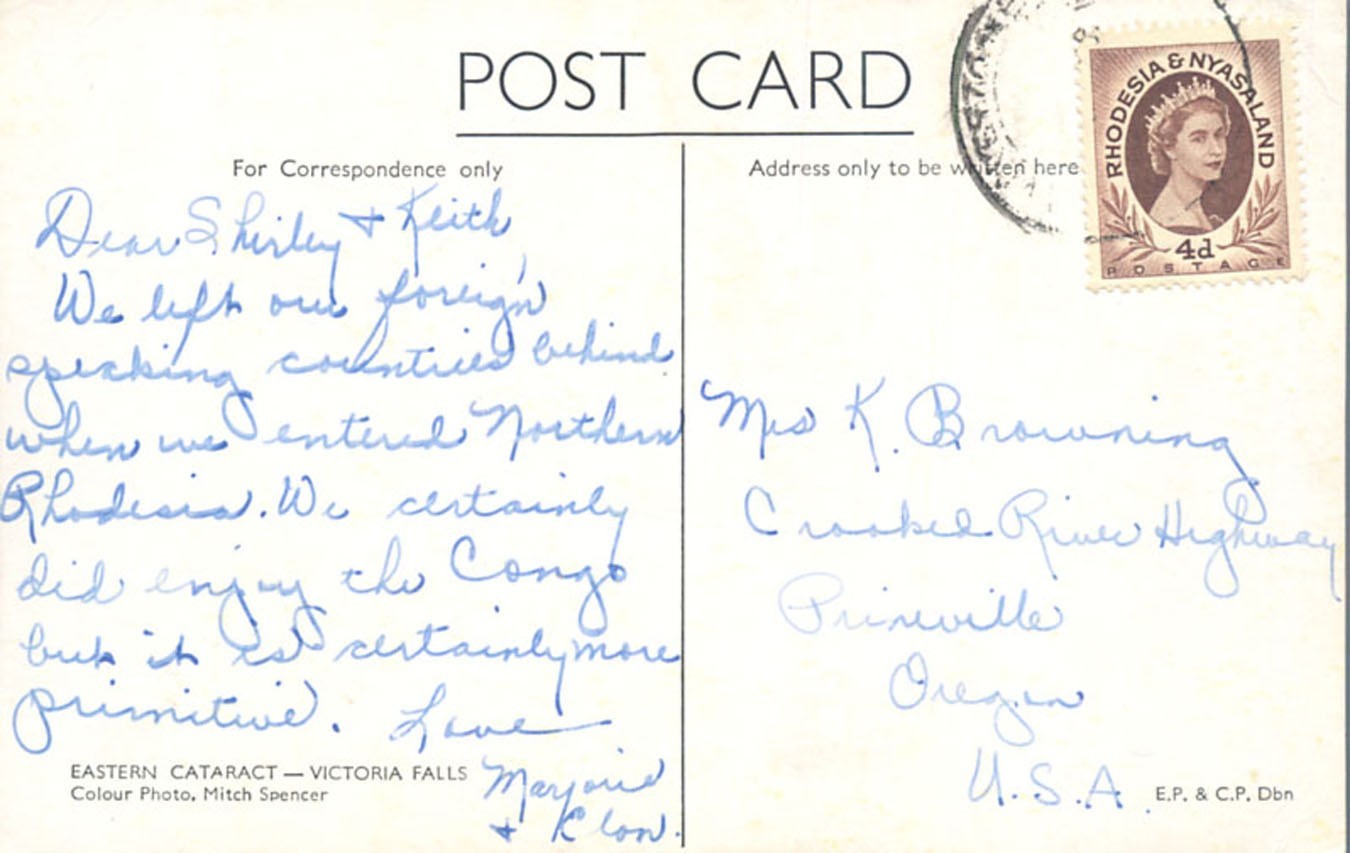 POST CARD
For Correspondence only
Dear Shirley + Keith,
We left our foreign
speaking countries behind
when we entered Northern
Rhodesia. We certainly
did enjoy the Congo
but it is certainly more
primitive. Love
Marjorie
+
EASTERN CATARACT — VICTORIA FALLS
Colour Photo. Mitch Spencer
Address only to be written here
RHODESIA & NYASALAND
4d
POSTAGE
Mrs K. Browning
Crooked River Highway
Prineville
Oregon
U.S.A.
E.P. & C.P. Dbn